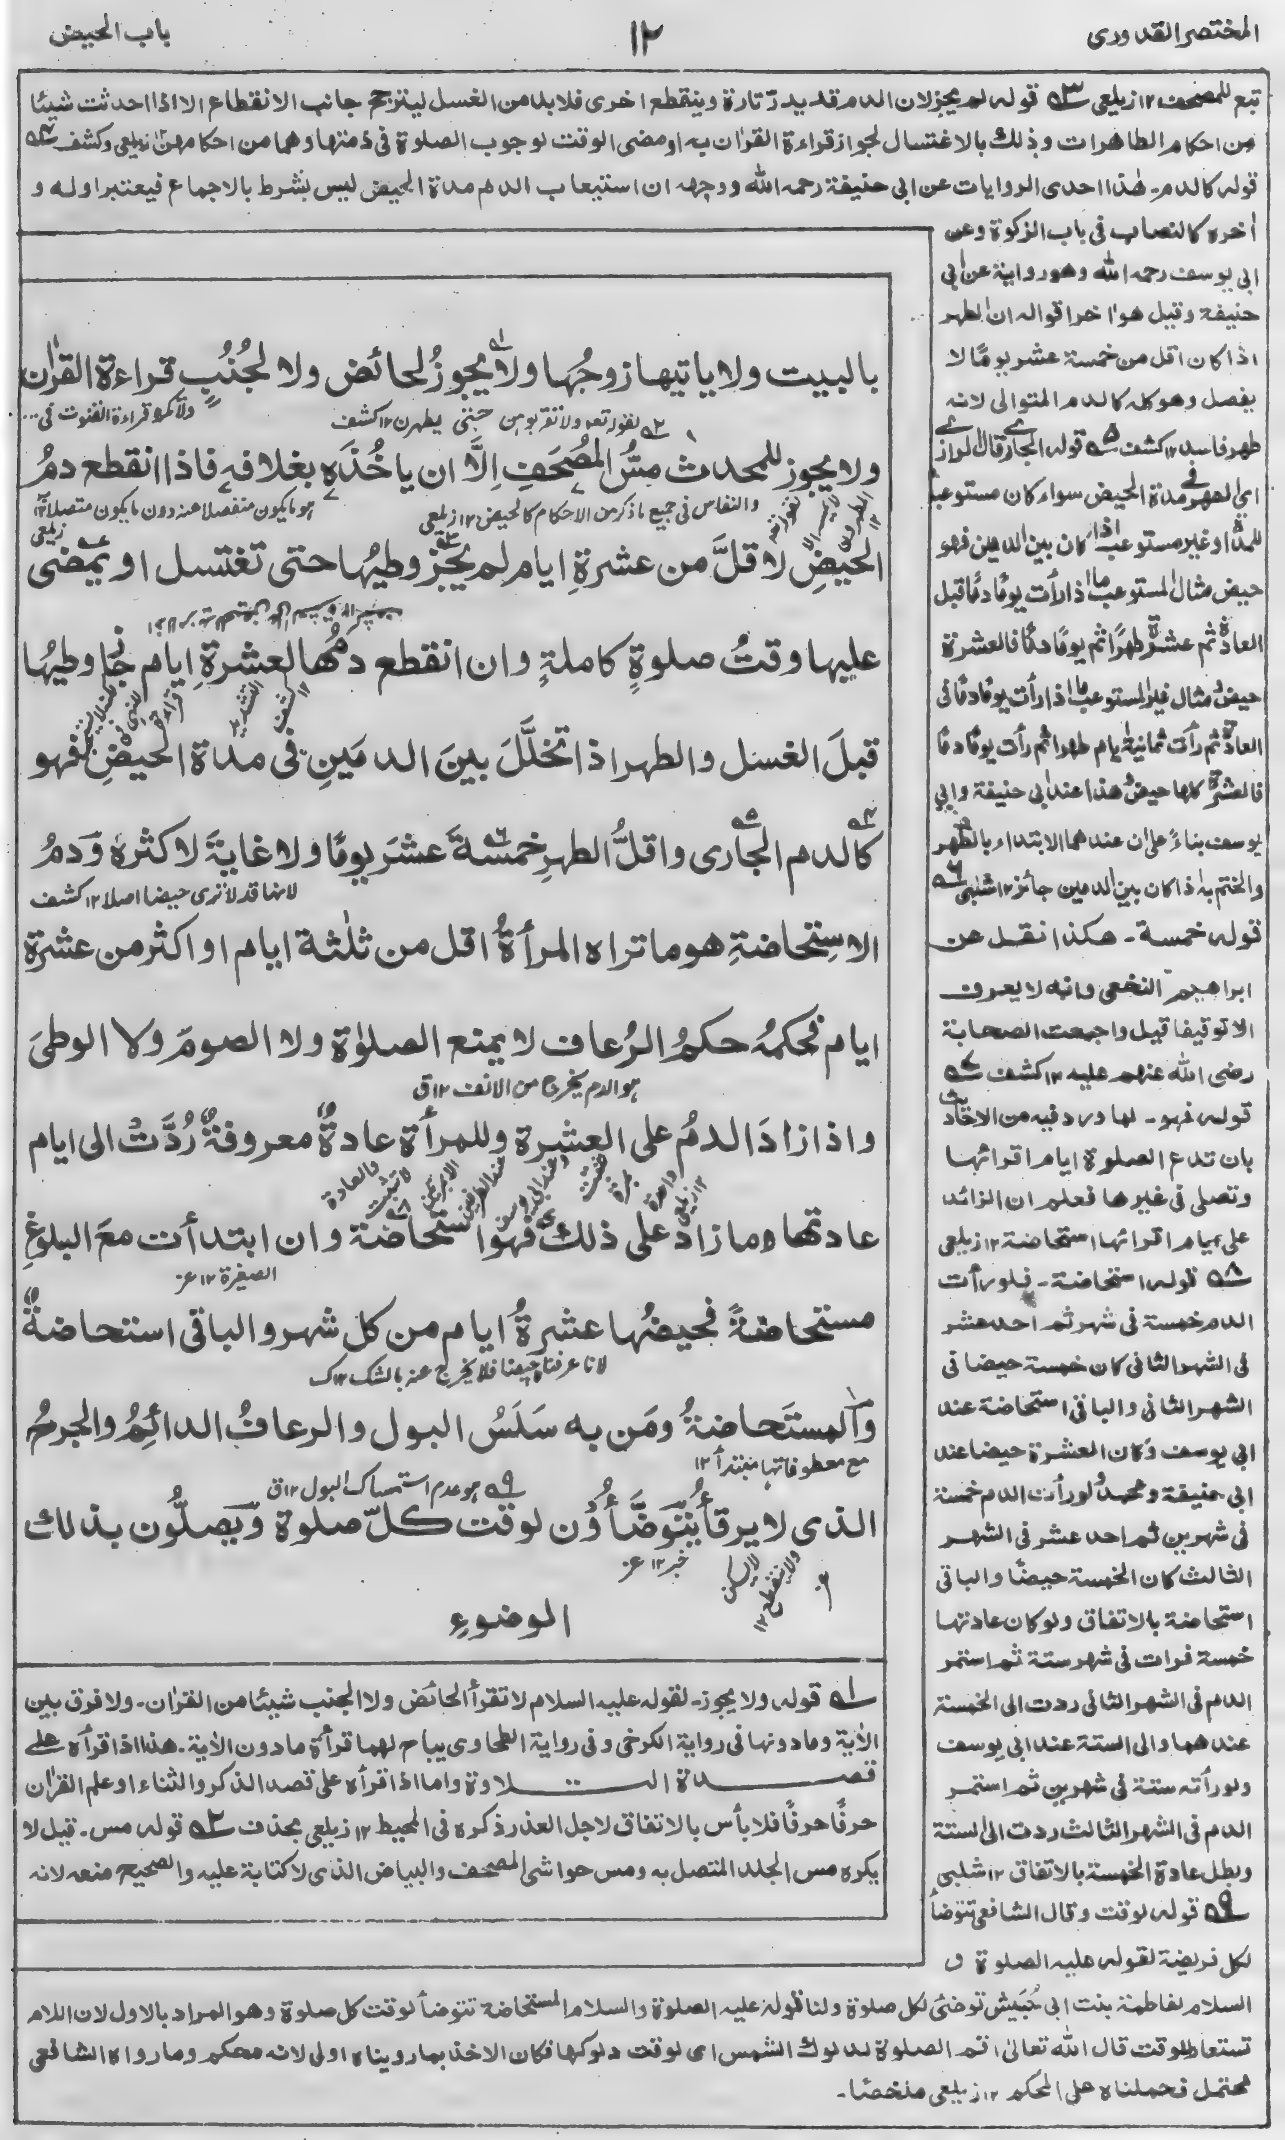 المختصر القدوری
١٢
باب الحیض
تبع للمصحف ١٢ زیلعی ٣؎ قولہ لم یجز لان الدم قد یدرّ تارة وینقطع اخری فلا بد من الغسل لیترجح جانب الانقطاع الا اذا احدثت شیئا
من احکام الطاهرات وذلك بالاغتسال لجواز قراءة القراٰن بہ او مضی الوقت لوجوب الصلوة فی ذمتها وهما من احکامهن ١٢ زیلعی وکشف ٤؎
قولہ کالدم۔ هٰذا احدی الروایات عن ابی حنیفة رحمہ اللہ ووجهہ ان استیعاب الدم مدة الحیض لیس بشرط بالاجماع فیعتبر اولہ و
اٰخرہ کالنصاب فی باب الزکوة وعن
ابی یوسف رحمہ اللہ وهو روایة عن ابی
حنیفة وقیل هو اٰخر اقوالہ ان الطهر
اذا کان اقل من خمسة عشر یومًا لا
یفصل وهو کلہ کالدم المتوالی لانہ
طهر فاسد ١٢ کشف ٥؎ قولہ الجاری قال الرازی
ای الطهر فی مدة الحیض سواء کان مستوعبا
للمدة او غیر مستوعب اذا کان بین الدمین فهو
حیض مثال المستوعب ما اذا رأت یومًا دمًا قبل
العادة ثم عشرة طهرًا ثم یومًا دمًا فالعشرة
حیض ومثال غیر المستوعب ما اذا رأت یومًا دمًا فی
العادة ثم رأت ثمانیة ایام طهرا ثم رأت یومًا دمًا
فالعشرة کلها حیض هذا عند ابی حنیفة وابی
یوسف بناءً علی ان عندهما الابتداء بالطهر
والختم بہ اذا کان بین الدمین جائز ١٢ شلبی ٦؎
قولہ خمسة۔ هکذا نقل عن
ابراهیم النخعی وانہ لا یعرف
الا توقیفا قیل واجمعت الصحابة
رضی اللہ عنهم علیہ ١٢ کشف ٧؎
قولہ فهو۔ لما ورد فیہ من الاحادیث
بان تدع الصلوة ایام اقرائها
وتصلی فی غیرها فعلم ان الزائد
علی ایام اقرائها استحاضة ١٢ زیلعی
٨؎ قولہ استحاضة۔ فلو رأت
الدم خمسة فی شهر ثم احد عشر
فی الشهر الثانی کان خمسة حیضا فی
الشهر الثانی والباقی استحاضة عند
ابی یوسف وکان العشرة حیضا عند
ابی حنیفة ومحمد ولو رأت الدم خمسة
فی شهرین ثم احد عشر فی الشهر
الثالث کان الخمسة حیضًا والباقی
استحاضة بالاتفاق ولو کان عادتها
خمسة فرات فی شهر ستة ثم استمر
الدم فی الشهر الثانی ردت الی الخمسة
عندهما والی الستة عند ابی یوسف
ولو رأتہ ستة فی شهرین ثم استمر
الدم فی الشهر الثالث ردت الی الستة
وبطل عادة الخمسة بالاتفاق ١٢ شلبی
٩؎ قولہ لوقت وقال الشافعی تتوضأ
لکل فریضة لقولہ علیہ الصلوة و
السلام لفاطمة بنت ابی حُبَیش توضئی لکل صلوة ولنا قولہ علیہ الصلوة والسلام المستحاضة تتوضأ لوقت کل صلوة وهو المراد بالاول لان اللام
تستعار للوقت قال اللہ تعالیٰ اقم الصلوة لدلوك الشمس ای لوقت دلوکها فکان الاخذ بما رویناہ اولی لانہ محکم وما رواہ الشافعی
محتمل فحملناہ علی المحکم ١٢ زیلعی ملخصًا۔
بالبیت ولا یاتیها زوجُها ولا یجوزُ لحائض ولا لجُنُبٍ قراءة القراٰن
لقولہ تعہ ولا تقربوهن حتی یطهرن ١٢ کشف
ولا تکرہ قراءة القنوت فی...
ولا یجوز للمحدث مسُّ المُصحَفِ اِلَّا ان یاخُذَہ بغلافہٖ فاذا انقطع دمُ
والنفاس فی جمیع ما ذکر من الاحکام کالحیض ١٢ زیلعی
هو ما یکون منفصلا عنہ دون ما یکون متصلا بہ ١٢ زیلعی
لقولہ تعہ لا یمسہ الا المطهرون ١٢
الحیضِ لاقلَّ من عشرةِ ایام لم یَجُز وطیُها حتی تغتسل او یمضی
علیها وقتُ صلوةٍ کاملةٍ وان انقطع دمُها لعشرةِ ایام جاز وطیُها
قبلَ الغسل والطهر اذا تخلَّلَ بینَ الدمَینِ فی مدة الحیضِ فهو
کالدم الجاری واقلُّ الطهرِ خمسةَ عشرَ یومًا ولا غایةَ لاکثرہ وَدمُ
لانها قد لا تری حیضا اصلا ١٢ کشف
الاستِحاضةِ هو ما تراہ المرأةُ اقل من ثلٰثة ایام او اکثر من عشرة
ایام فحکمُہ حکمُ الرُعاف لا یمنع الصلٰوة ولا الصومَ ولا الوطیَ
هو الدم یخرج من الانف ١٢ ق
واذا زادَ الدمُ علی العشرة وللمرأة عادةٌ معروفةٌ رُدَّتْ الی ایام
عادتها وما زاد علی ذلك فهو استحاضة وان ابتدأت معَ البلوغِ
الصفرة ١٢ عز
مستحاضةً فحیضُها عشرةُ ایام من کل شهر والباقی استحاضةٌ
لانا عرفناہ حیضا فلا یخرج عنہ بالشك ١٢ ك
والمستَحاضةُ ومَن بہ سَلَسُ البول والرعافُ الدائِمُ والجرحُ
مع معطوفاتها مبتدأ ١٢
هو عدم استمساك البول ١٢ ق
الذی لا یرقأ یتوضَّأُوْن لوقت کلّ صلوة ویَصلُّون بذلك
خبر ١٢ عز
الوضوءِ
١؎ قولہ ولا یجوز۔ لقولہ علیہ السلام لا تقرأ الحائض ولا الجنب شیئا من القراٰن۔ ولا فرق بین
الاٰیة وما دونها فی روایة الکرخی وفی روایة الطحاوی یباح لهما قرأة ما دون الاٰیة۔ هذا اذا قرأہ علی
قصد التلاوة واما اذا قرأہ علی قصد الذکر والثناء او علم القراٰن
حرفًا حرفًا فلا بأس بالاتفاق لاجل العذر ذکرہ فی المحیط ١٢ زیلعی بحذف ٢؎ قولہ مس۔ قیل لا
یکرہ مس الجلد المتصل بہ ومس حواشی المصحف والبیاض الذی لا کتابة علیہ والصحیح منعہ لانہ